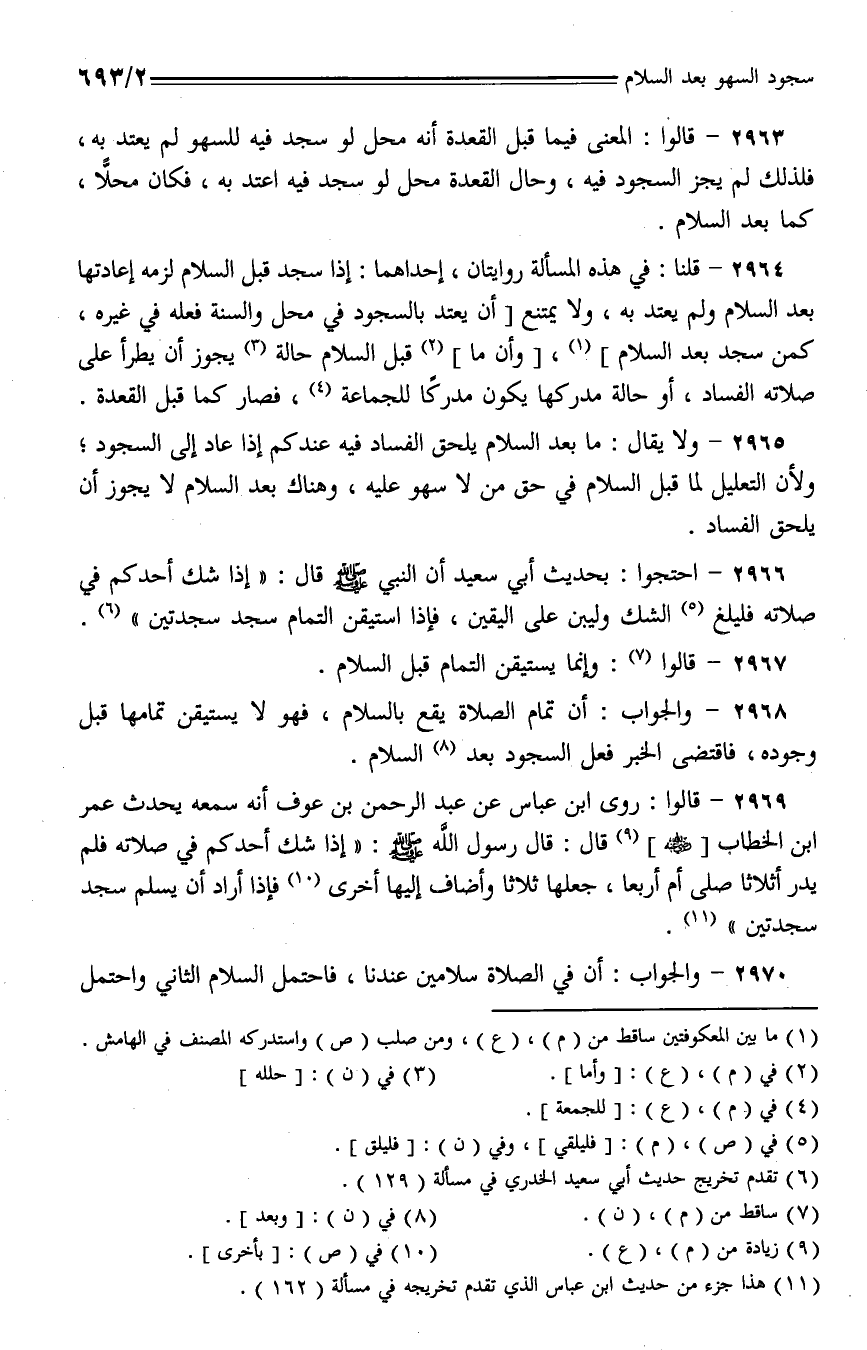 سجود السهو بعد السلام ٦٩٣/٢
٢٩٦٣ - قالوا : المعنى فيما قبل القعدة أنه محل لو سجد فيه للسهو لم يعتد به ،
فلذلك لم يجز السجود فيه ، وحال القعدة محل لو سجد فيه اعتد به ، فكان محلًّا ،
كما بعد السلام .
٢٩٦٤ - قلنا : في هذه المسألة روايتان ، إحداهما : إذا سجد قبل السلام لزمه إعادتها
بعد السلام ولم يعتد به ، ولا يمتنع [ أن يعتد بالسجود في محل والسنة فعله في غيره ،
كمن سجد بعد السلام ] (١) ، [ وأن ما ] (٢) قبل السلام حالة (٣) يجوز أن يطرأ على
صلاته الفساد ، أو حالة مدركها يكون مدركًا للجماعة (٤) ، فصار كما قبل القعدة .
٢٩٦٥ - ولا يقال : ما بعد السلام يلحق الفساد فيه عندكم إذا عاد إلى السجود ؛
ولأن التعليل لما قبل السلام في حق من لا سهو عليه ، وهناك بعد السلام لا يجوز أن
يلحق الفساد .
٢٩٦٦ - احتجوا : بحديث أبي سعيد أن النبي ﷺ قال : « إذا شك أحدكم في
صلاته فليلغ (٥) الشك وليبن على اليقين ، فإذا استيقن التمام سجد سجدتين » (٦) .
٢٩٦٧ - قالوا (٧) : وإنما يستيقن التمام قبل السلام .
٢٩٦٨ - والجواب : أن تمام الصلاة يقع بالسلام ، فهو لا يستيقن تمامها قبل
وجوده ، فاقتضى الخبر فعل السجود بعد (٨) السلام .
٢٩٦٩ - قالوا : روى ابن عباس عن عبد الرحمن بن عوف أنه سمعه يحدث عمر
ابن الخطاب [ رضي الله عنه ] (٩) قال : قال رسول اللَّه ﷺ : « إذا شك أحدكم في صلاته فلم
يدر أثلاثا صلى أم أربعا ، جعلها ثلاثا وأضاف إليها أخرى (١٠) فإذا أراد أن يسلم سجد
سجدتين » (١١) .
٢٩٧٠ - والجواب : أن في الصلاة سلامين عندنا ، فاحتمل السلام الثاني واحتمل
(١) ما بين المعكوفتين ساقط من ( م ) ، ( ع ) ، ومن صلب ( ص ) واستدركه المصنف في الهامش .
(٢) في ( م ) ، ( ع ) : [ وأما ] . (٣) في ( ن ) : [ حلله ]
(٤) في ( م ) ، ( ع ) : [ للجمعة ] .
(٥) في ( ص ) ، ( م ) : [ فليلقي ] ، وفي ( ن ) : [ فليلق ] .
(٦) تقدم تخريج حديث أبي سعيد الخدري في مسألة ( ١٢٩ ) .
(٧) ساقط من ( م ) ، ( ن ) . (٨) في ( ن ) : [ وبعد ] .
(٩) زيادة من ( م ) ، ( ع ) . (١٠) في ( ص ) : [ بأخرى ] .
(١١) هذا جزء من حديث ابن عباس الذي تقدم تخريجه في مسألة ( ١٦٢ ) .